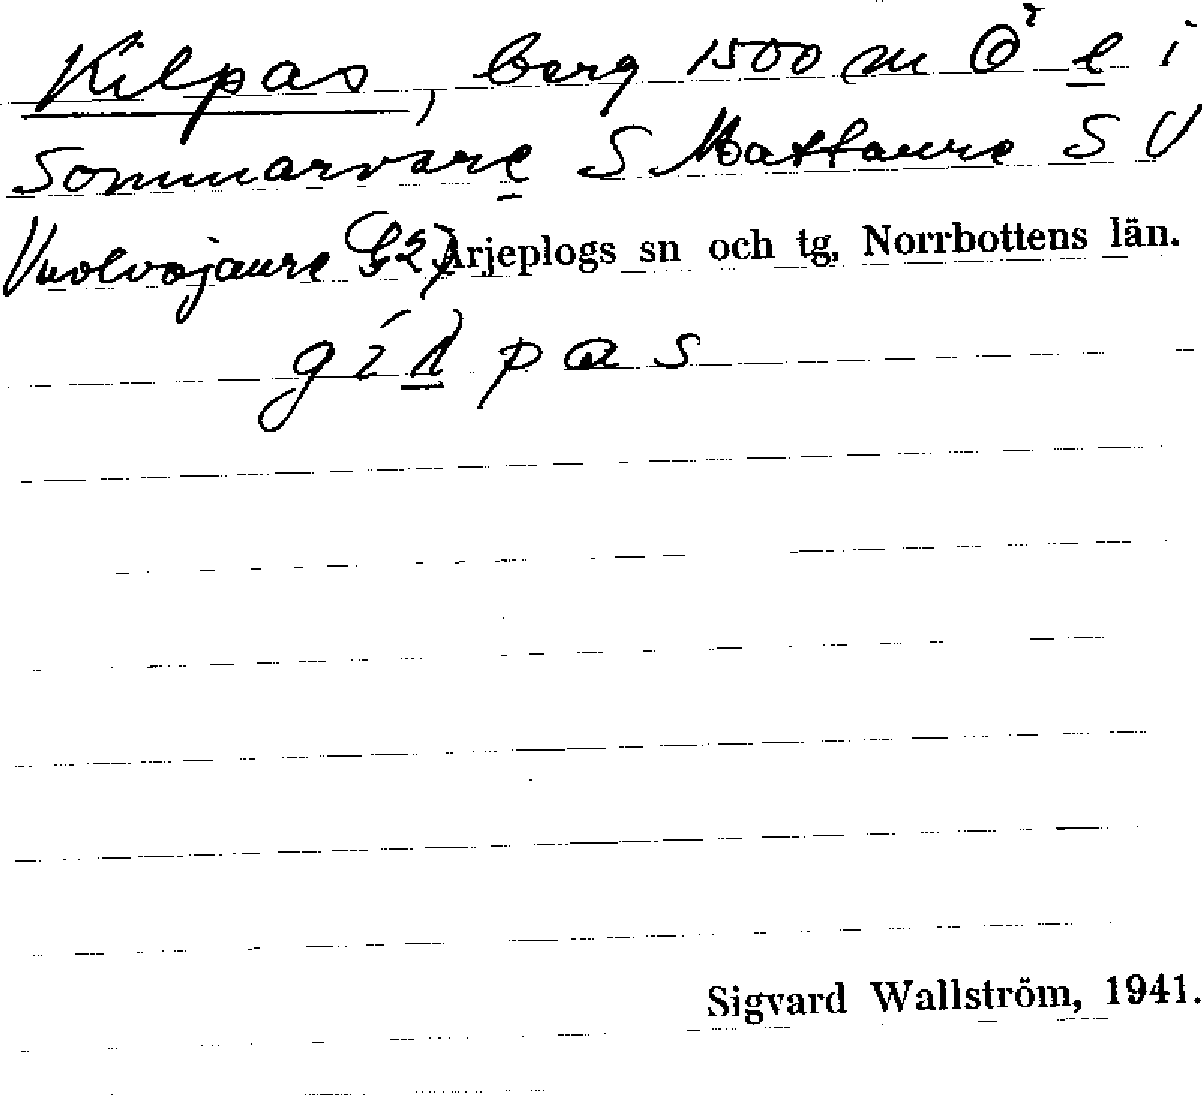 Kilpas, berg 1500 m Ö e i
Sommarvare S Mattaure SV
Vuolvojaure G2) Arjeplogs sn och tg, Norrbottens län.
gílpas
Sigvard Wallström, 1941.